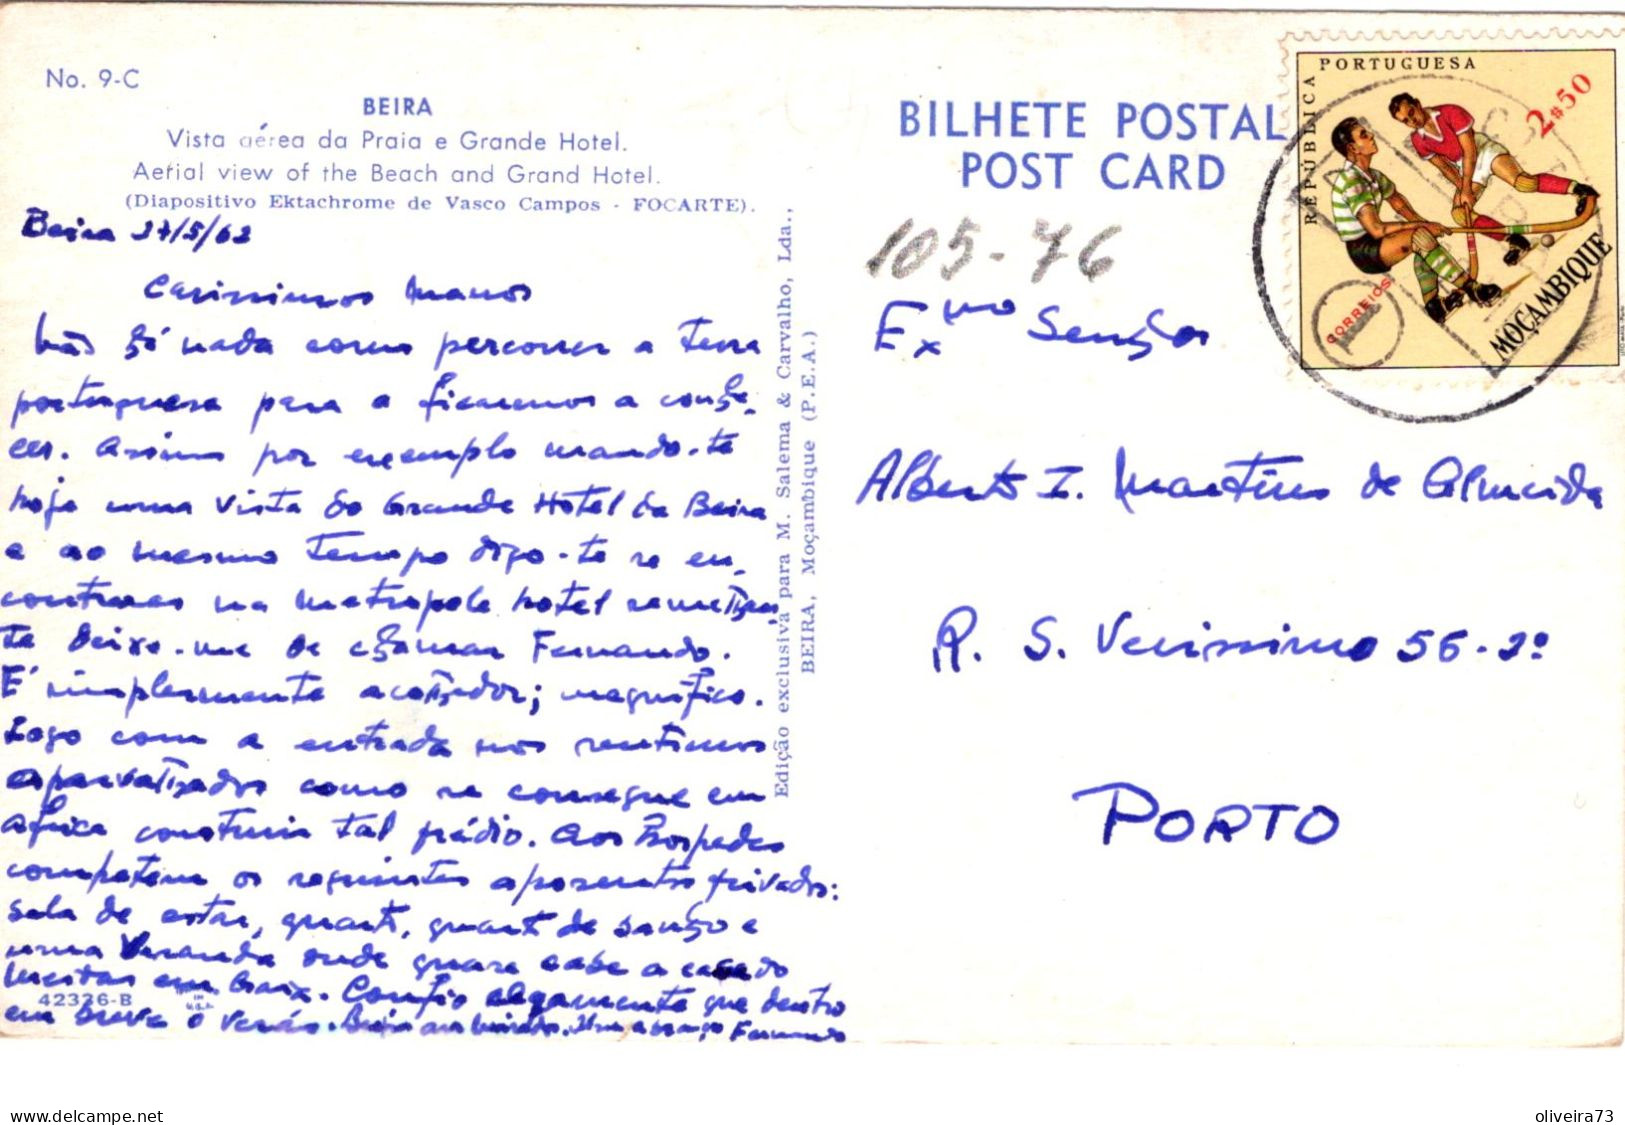 No. 9-C
BEIRA
Vista aérea da Praia e Grande Hotel.
Aerial view of the Beach and Grand Hotel.
(Diapositivo Ektachrome de Vasco Campos - FOCARTE).
Beira 27/5/62
Carissimos Manos
Não há nada como percorrer a terra
portuguesa para a ficarmos a conhe-
cer. Assim por exemplo mando-te
hoje uma vista do Grande Hotel da Beira
e ao mesmo tempo digo-te se en-
contrares na Metropole hotel semelhan-
te deixo-me de chamar Fernando.
É simplesmente acolhedor; magnifico.
Logo com a entrada nos sentimos
como se consegue em
Africa construir tal prédio. Aos hospedes
competem os seguintes aposentos privados:
sala de estar, quarto, quarto de banho e
uma Varanda onde quase cabe a casa do
em baixo. Confio que dentro
em breve o verás. Um abraço Fernando
42336-B
Edição exclusiva para M. Salema & Carvalho, Lda.,
BEIRA, Moçambique (P.E.A.)
BILHETE POSTAL
POST CARD
105-76
REPÚBLICA PORTUGUESA
2$50
CORREIOS
MOÇAMBIQUE
Exmo Senhor
Alberto I. Martins de Almeida
R. S. Verissimo 56-2º
PORTO
delcampe.net
oliveira73